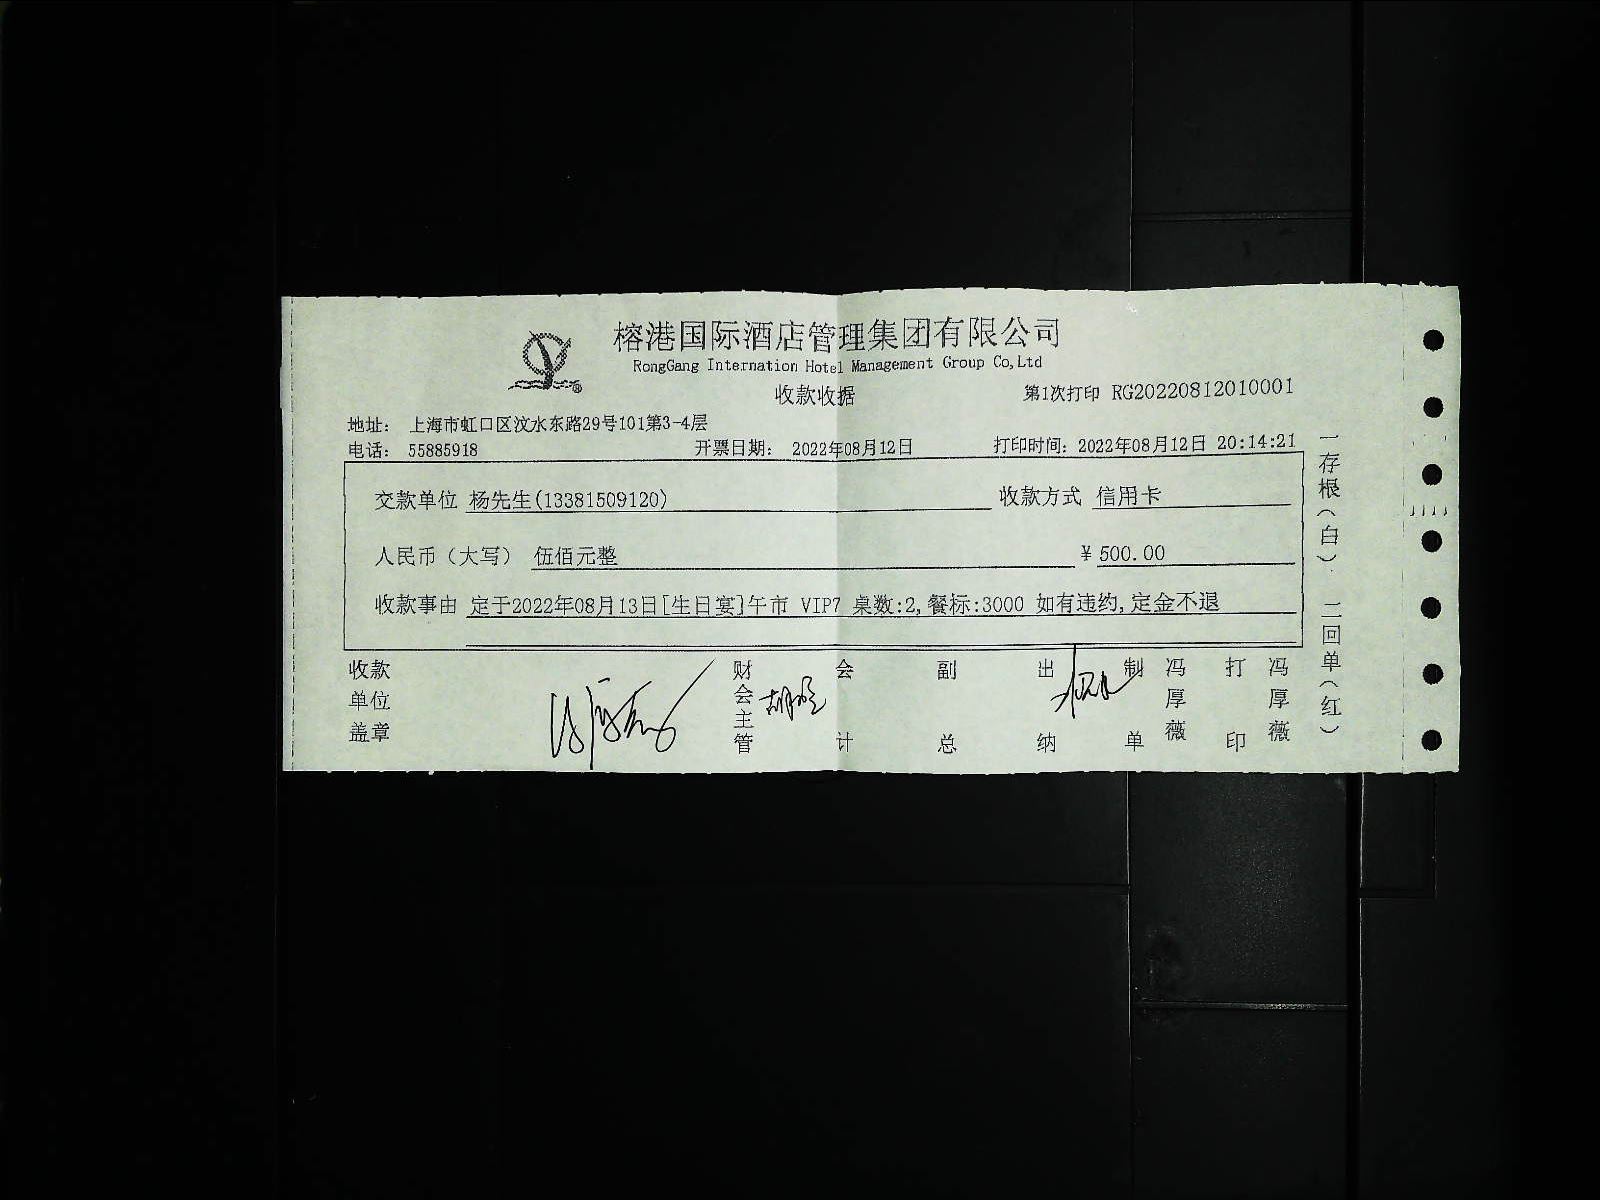 榕港国际酒店管理集团有限公司
RongGang Internation Hotel Management Group Co,Ltd
收款收据
第1次打印 RG20220812010001
地址： 上海市虹口区汶水东路29号101第3-4层
电话： 55885918 开票日期： 2022年08月12日 打印时间：2022年08月12日 20:14:21
交款单位 杨先生(13381509120) 收款方式 信用卡
人民币（大写） 伍佰元整 ¥500.00
收款事由 定于2022年08月13日[生日宴]午市 VIP7 桌数:2,餐标:3000 如有违约,定金不退
收款单位盖章
财会主管
会计
副总
出纳
制单 冯厚薇
打印 冯厚薇
一存根（白） 二回单（红）